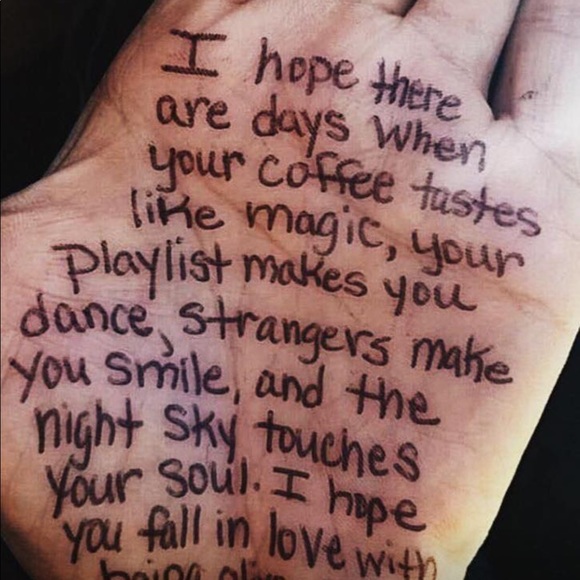 I hope there
are days when
your coffee tastes
like magic, your
playlist makes you
dance, strangers make
you smile, and the
night sky touches
your soul. I hope
you fall in love with
being alive